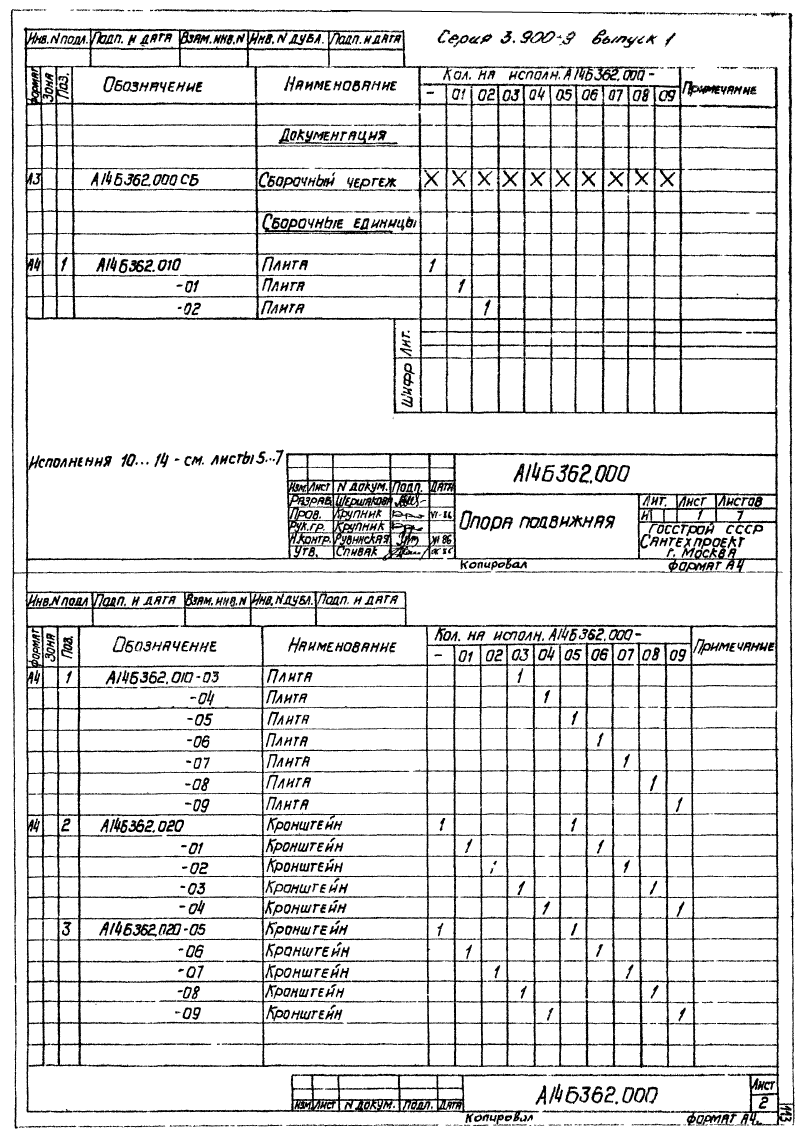 Серия 3.900-9 выпуск 1
Инв.N подл. Подп. и дата Взам.инв.N Инв.N дубл. Подп. и дата
Формат Зона Поз. Обозначение Наименование Кол. на исполн. А14Б362.000- Примечание
- 01 02 03 04 05 06 07 08 09
Документация
А3 А14Б362.000 СБ Сборочный чертеж X X X X X X X X X X
Сборочные единицы
А4 1 А14Б362.010 Плита 1
-01 Плита 1
-02 Плита 1
Шифр Лит.
Исполнения 10...14 - см. листы 5...7
А14Б362.000
Изм. Лист N докум. Подп. Дата
Разраб. Шершакова
Пров. Крупник VI-86
Рук.гр. Крупник
Н.контр. Рувинская VI 86
Утв. Спивак
Опора подвижная
Лит. Лист Листов
И 1 7
Госстрой СССР
Сантехпроект
г. Москва
Копировал Формат А4
Инв.N подл. Подп. и дата Взам.инв.N Инв.N дубл. Подп. и дата
Формат Зона Поз. Обозначение Наименование Кол. на исполн. А14Б362.000- Примечание
- 01 02 03 04 05 06 07 08 09
А4 1 А14Б362.010-03 Плита 1
-04 Плита 1
-05 Плита 1
-06 Плита 1
-07 Плита 1
-08 Плита 1
-09 Плита 1
А4 2 А14Б362.020 Кронштейн 1 1
-01 Кронштейн 1 1
-02 Кронштейн 1 1
-03 Кронштейн 1 1
-04 Кронштейн 1 1
3 А14Б362.020-05 Кронштейн 1 1
-06 Кронштейн 1 1
-07 Кронштейн 1 1
-08 Кронштейн 1 1
-09 Кронштейн 1 1
Изм. Лист N докум. Подп. Дата
А14Б362.000
Лист
2
Копировал Формат А4
113